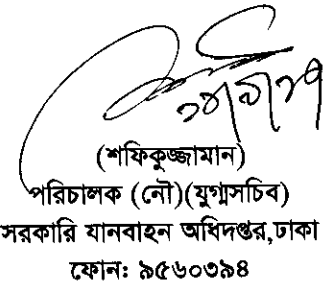 (শফিকুজ্জামান)
পরিচালক (নৌ)(যুগ্মসচিব)
সরকারি যানবাহন অধিদপ্তর,ঢাকা
ফোনঃ ৯৫৬০৩৯৪